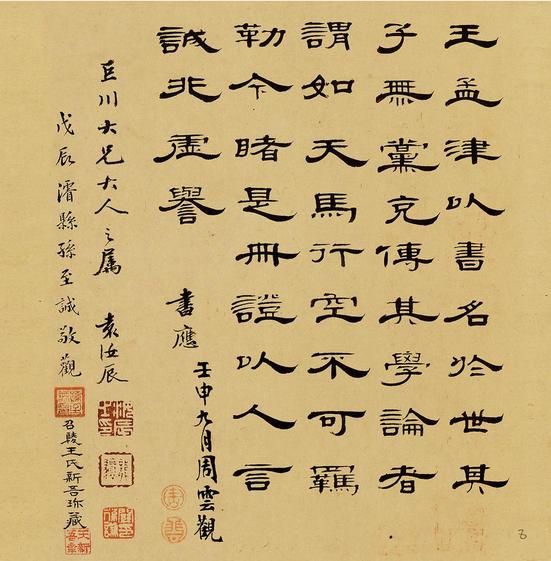 王孟津以書名於世其
子無黨克傳其學論者
謂如天馬行空不可羈
勒今睹是冊證以人言
誠非虛譽
壬申九月周雲觀
書應
巨川大兄大人之屬 袁汝辰
戊辰濬縣孫至誠敬觀
召陵王氏新吾珍藏